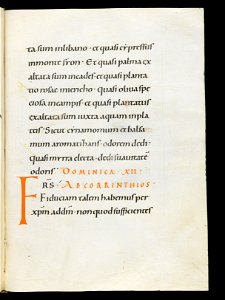 ta sum in libano · et quasi cypressus
in monte syon · Et quasi palma ex
altata sum in cades · et quasi planta
tio rosae in iericho · Quasi oliva spe
ciosa in campis · et quasi plantatus
exaltata sum iuxta aquam in pla
teis · Sicut cynamomum et balsa
mum aromatizans odorem dedi ·
quasi myrra electa · dedi suavitate
odoris · DOMINICA · XII ·
FRS · AD CORINTHIOS ·
Fiduciam talem habemus per
xpm ad dm · non quod sufficientes